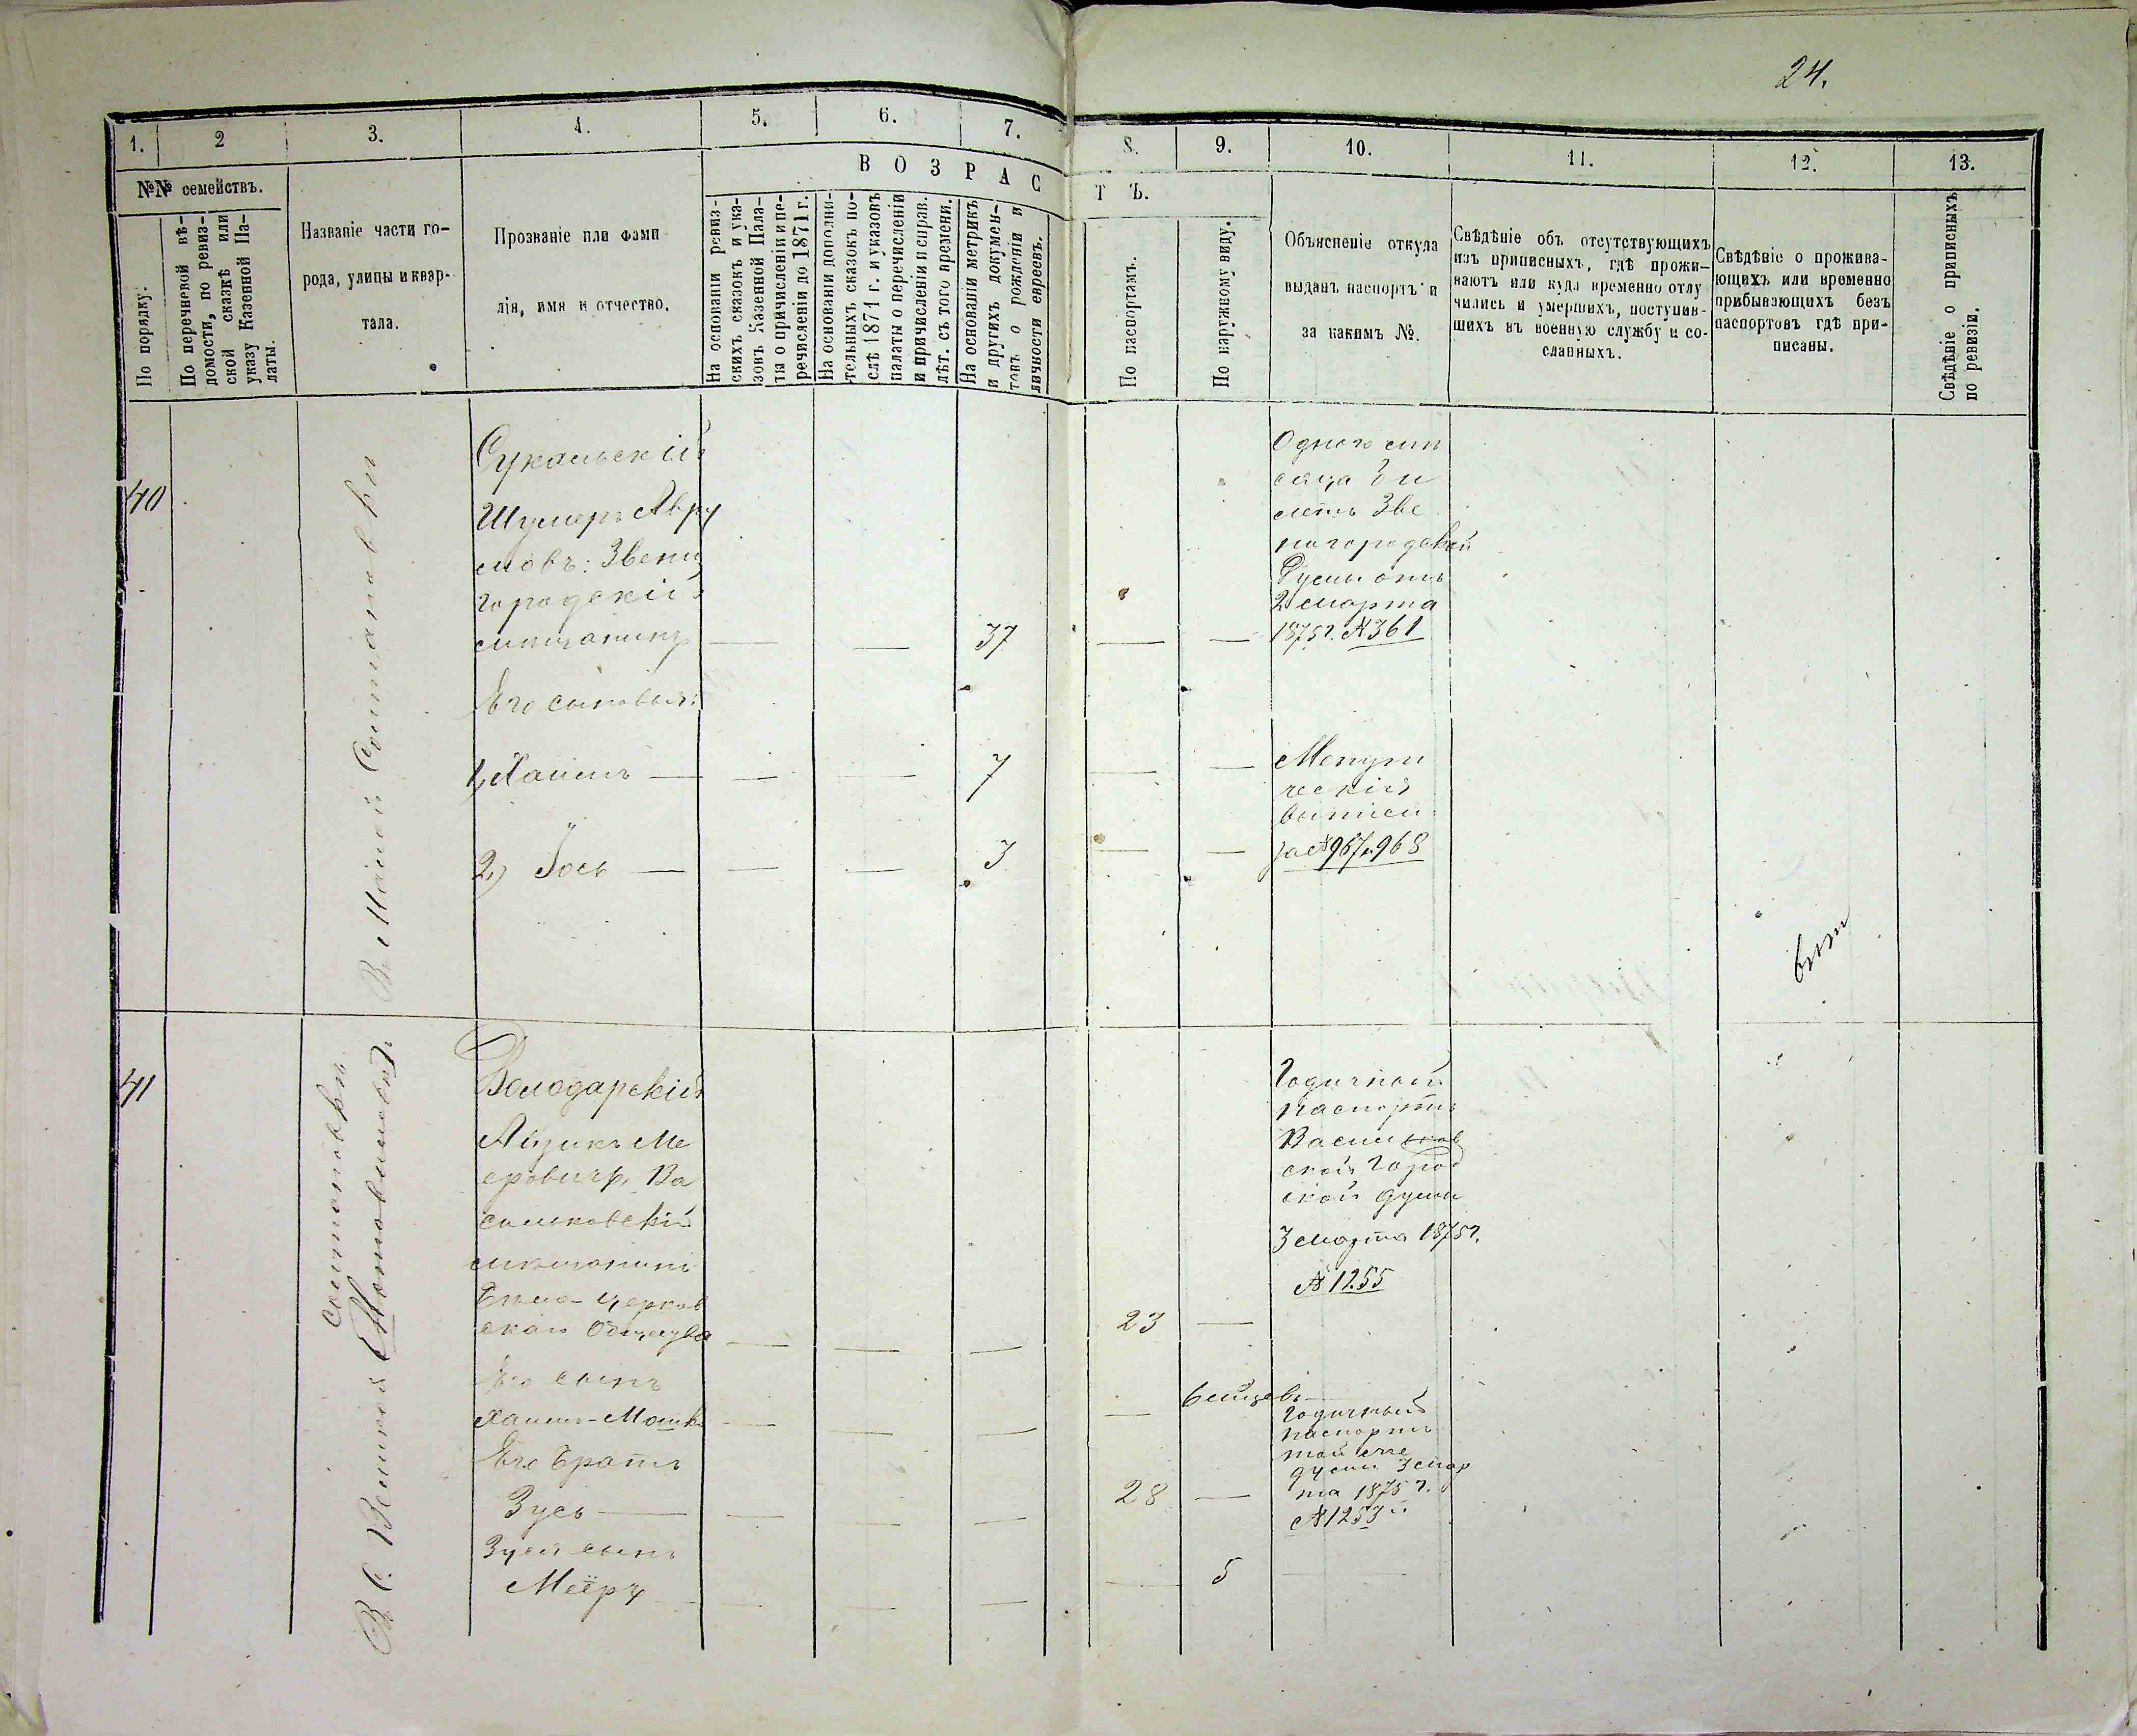 24.
1.
2
3.
4.
5.
6.
7.
8.
9.
10.
11.
12.
13.
№№ семействъ.
По порядку.
По перечневой вѣ-
домости, по ревиз-
ской сказкѣ или
указу Казенной Па-
латы.
Названіе части го-
рода, улицы и квар-
тала.
Прозваніе или фами
лія, имя и отчество.
ВОЗРАС
ТЪ.
На основаніи ревиз-
скихъ сказокъ и ука-
зовъ Казенной Пала-
ты о причисленіи и пе-
речисленіи до 1871 г.
На основаніи дополни-
тельныхъ сказокъ по-
слѣ 1871 г. и указовъ
палаты о перечисленіи
и причисленіи и справ.
лѣт. съ того времени.
На основаніи метрикъ
и другихъ докумен-
товъ о рожденіи и
личности евреевъ.
По паспортамъ.
По наружному виду.
Объясненіе откуда
выданъ паспортъ и
за какимъ №.
Свѣдѣніе объ отсутствующихъ
изъ приписныхъ, гдѣ прожи-
ваютъ или куда временно отлу
чились и умершихъ, поступив-
шихъ въ военную службу и со-
сланныхъ.
Свѣдѣніе о прожива-
ющихъ или временно
прибывающихъ безъ
паспортовъ гдѣ при-
писаны.
Свѣдѣніе о приписныхъ
по ревизіи.
40
Сукальскій
Шулеръ Авру
мовъ: Звени
городскій
мѣщанинъ
37
Его сыновья:
1, Хаимъ
7
2, Іось
3
Звe
ногородской
Думы отъ
2 марта
1875 г. №361
Метри
ческій
за №967 и 968
41
Володарскій
Айзикъ Ме
еровичъ, Ва
сильковскій
мѣщанинъ
Бѣло-Церков
23
Его сынъ
Хаимъ-Мошко
Его братъ
Зусь
28
Зуся сынъ
Меёръ
5
Годичной
паспортъ
Васильков
ской Город
ской Думы
3 марта 1875 г.
№ 1255
Годичный
паспортъ
той же
думы 3 мар
та 1875 г.
№1253